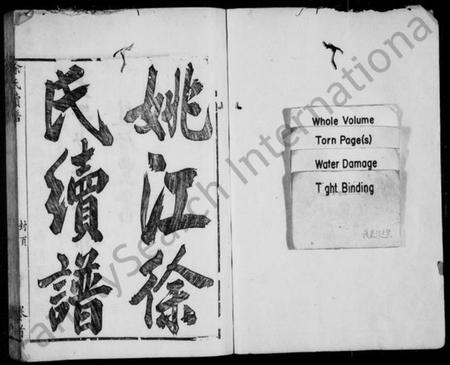 姚江徐
氏續譜
封頁
卷首
Whole Volume
Torn Page(s)
Water Damage
T ght Binding
FamilySearch International